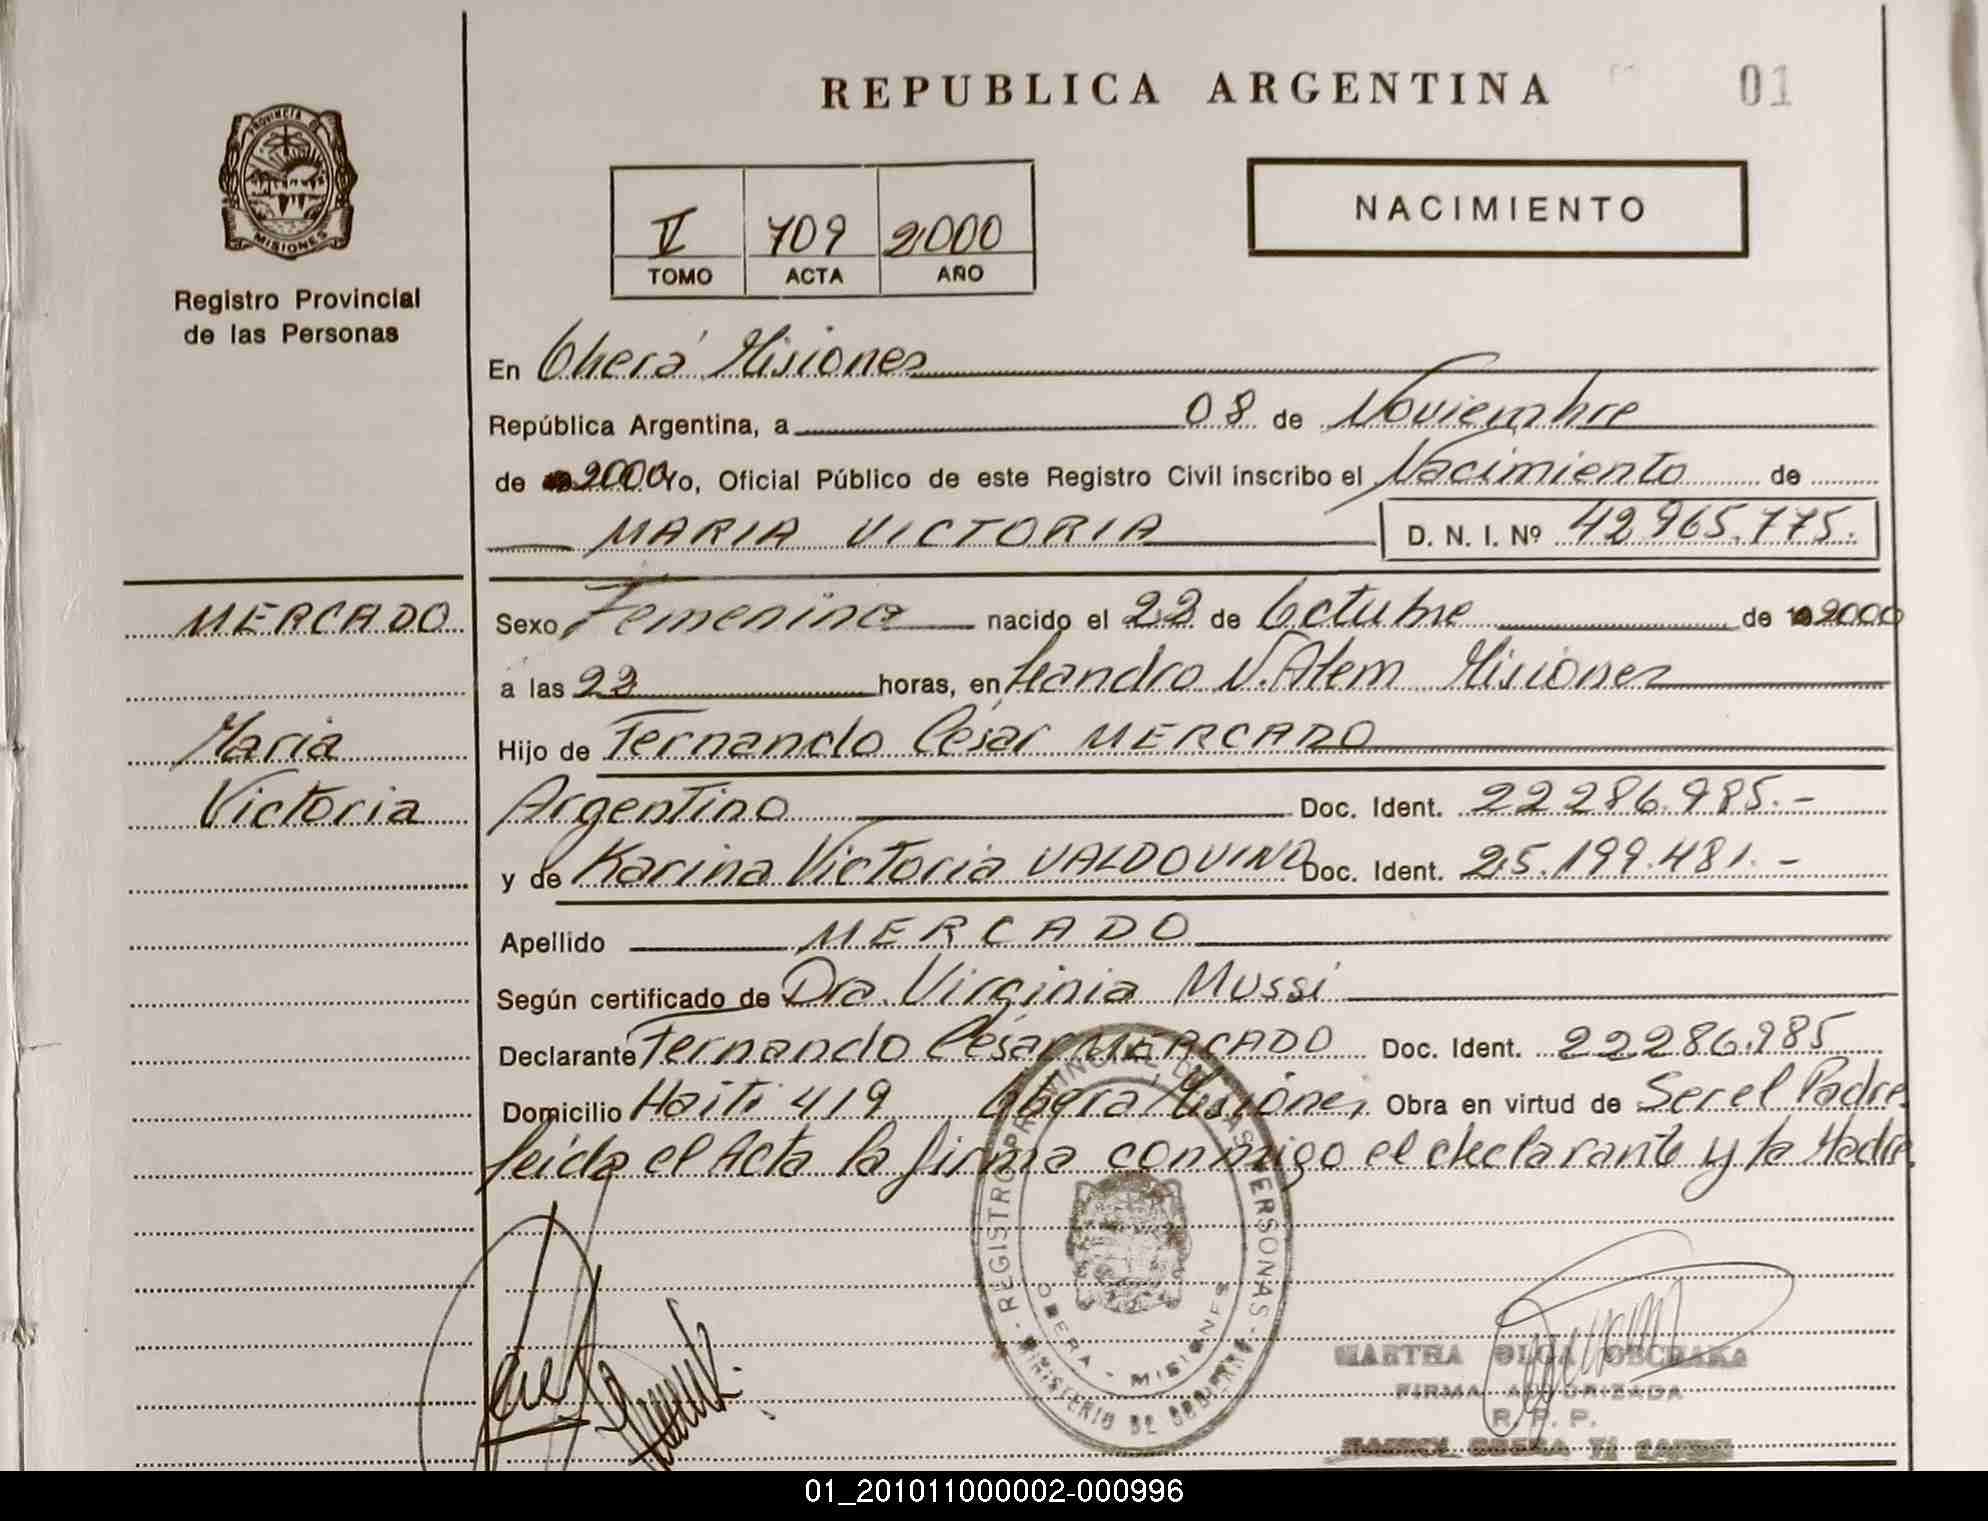 REPUBLICA ARGENTINA
01
PROVINCIA DE
MISIONES
Registro Provincial
de las Personas
V 709 2000
TOMO ACTA AÑO
NACIMIENTO
En Oberá Misiones
República Argentina, a 08 de Noviembre
de 2000 Yo, Oficial Público de este Registro Civil inscribo el Nacimiento de
MARIA VICTORIA D. N. I. Nº 42.965.775.
MERCADO
Maria
Victoria
Sexo Femenina nacido el 22 de Octubre de 2000
a las 22 horas, en Leandro N. Alem Misiones
Hijo de Fernando César MERCADO
Argentino Doc. Ident. 22.286.985.-
y de Karina Victoria VALDOVINO Doc. Ident. 25.199.481.-
Apellido MERCADO
Según certificado de Dra. Virginia Mussi
Declarante Fernando César MERCADO Doc. Ident. 22.286.985
Domicilio Haiti 419 Oberá Misiones Obra en virtud de Ser el Padre
leída el Acta la firma conmigo el declarante y la Madre.
- REGISTRO PROVINCIAL DE LAS PERSONAS -
OBERA - MISIONES
MINISTERIO DE GOBIERNO
MARTHA OLGA
FIRMA AUTORIZADA
R. P. P.
01_201011000002-000996